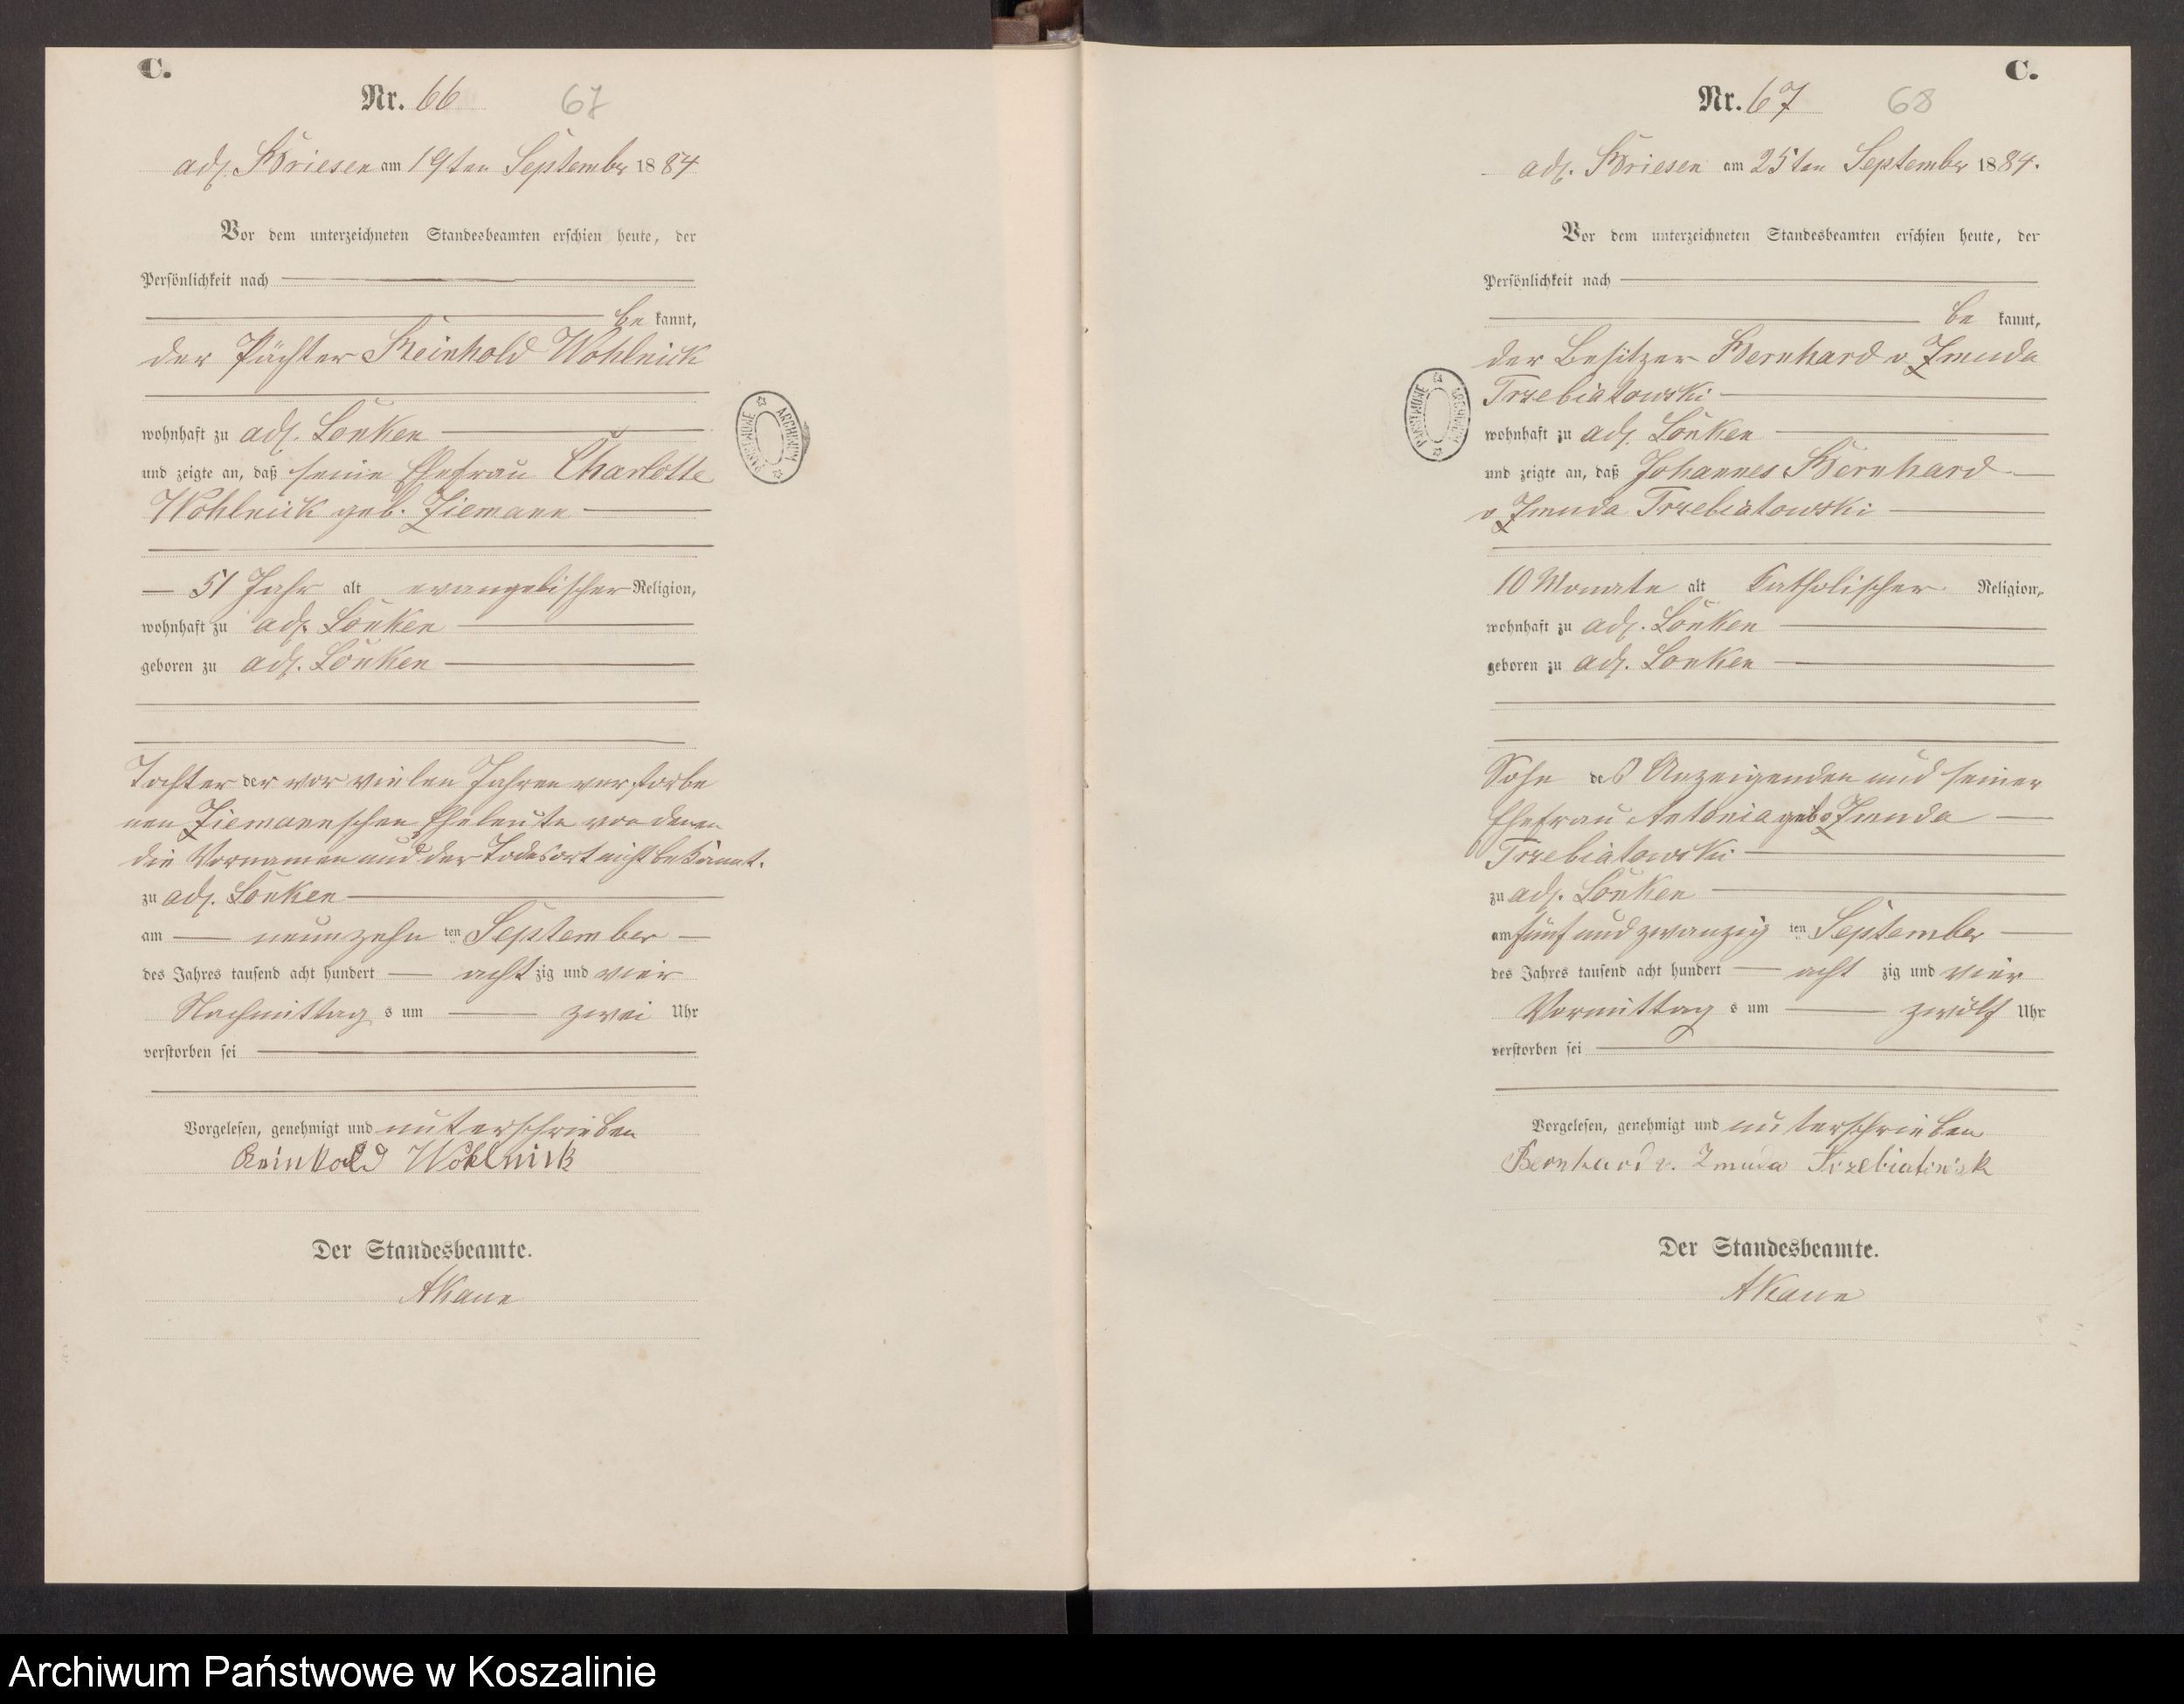 C.
Nr. 66 67
adl. Briesen am 19ten September 1884
Vor dem unterzeichneten Standesbeamten erschien heute, der
Persönlichkeit nach
be kannt,
der Pächter Reinhold Wohlnick
wohnhaft zu adl. Lonken
und zeigte an, daß seine Ehefrau Charlotte
Wohlnick geb. Ziemann
51 Jahr alt evangelischer Religion,
wohnhaft zu adl. Lonken
geboren zu adl. Lonken
Tochter der vor vielen Jahren verstorbe
nen Ziemannschen Eheleute von denen
die Vornamen und der Todesort nicht bekannt.
zu adl. Lonken
am neunzehn ten September
des Jahres tausend acht hundert acht zig und vier
Nachmittag s um zwei Uhr
verstorben sei
Vorgelesen, genehmigt und unterschrieben
Reinhold Wohlnick
Der Standesbeamte.
AKaun
ARCHIWUM PAŃSTWOWE
C.
Nr. 67 68
adl. Briesen am 25ten September 1884.
Vor dem unterzeichneten Standesbeamten erschien heute, der
Persönlichkeit nach
be kannt,
der Besitzer Bernhard v Zmuda
Trzebiatowski
wohnhaft zu adl. Lonken
und zeigte an, daß Johannes Bernhard
v Zmuda Trzebiatowski
10 Monate alt katholischer Religion,
wohnhaft zu adl. Lonken
geboren zu adl. Lonken
Sohn des Anzeigenden und seiner
Ehefrau Antonia geb v Zmuda
Trzebiatowski
zu adl. Lonken
am fünf und zwanzig ten September
des Jahres tausend acht hundert acht zig und vier
Vormittag s um zwölf Uhr
verstorben sei
Vorgelesen, genehmigt und unterschrieben
Bernhard v. Zmuda Trzebiatowsk
Der Standesbeamte.
AKaun
ARCHIWUM PAŃSTWOWE
Archiwum Państwowe w Koszalinie